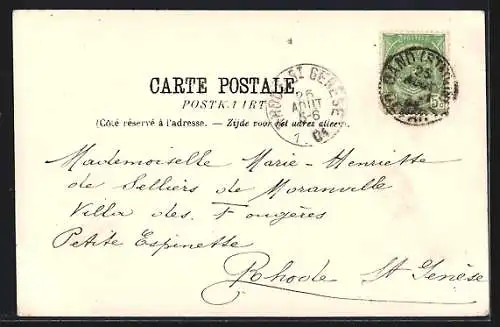 CARTE POSTALE
POSTKAART
(Côté réservé à l'adresse. — Zijde voor het adres alleen)
RHODE ST GENESE
26
AOUT
5-6
1 04
GAND (STATION)
25
Mademoiselle Marie-Henriette
de Selliers de Moranville
Villa des Fougères
Petite Espinette
Rhode St Genèse